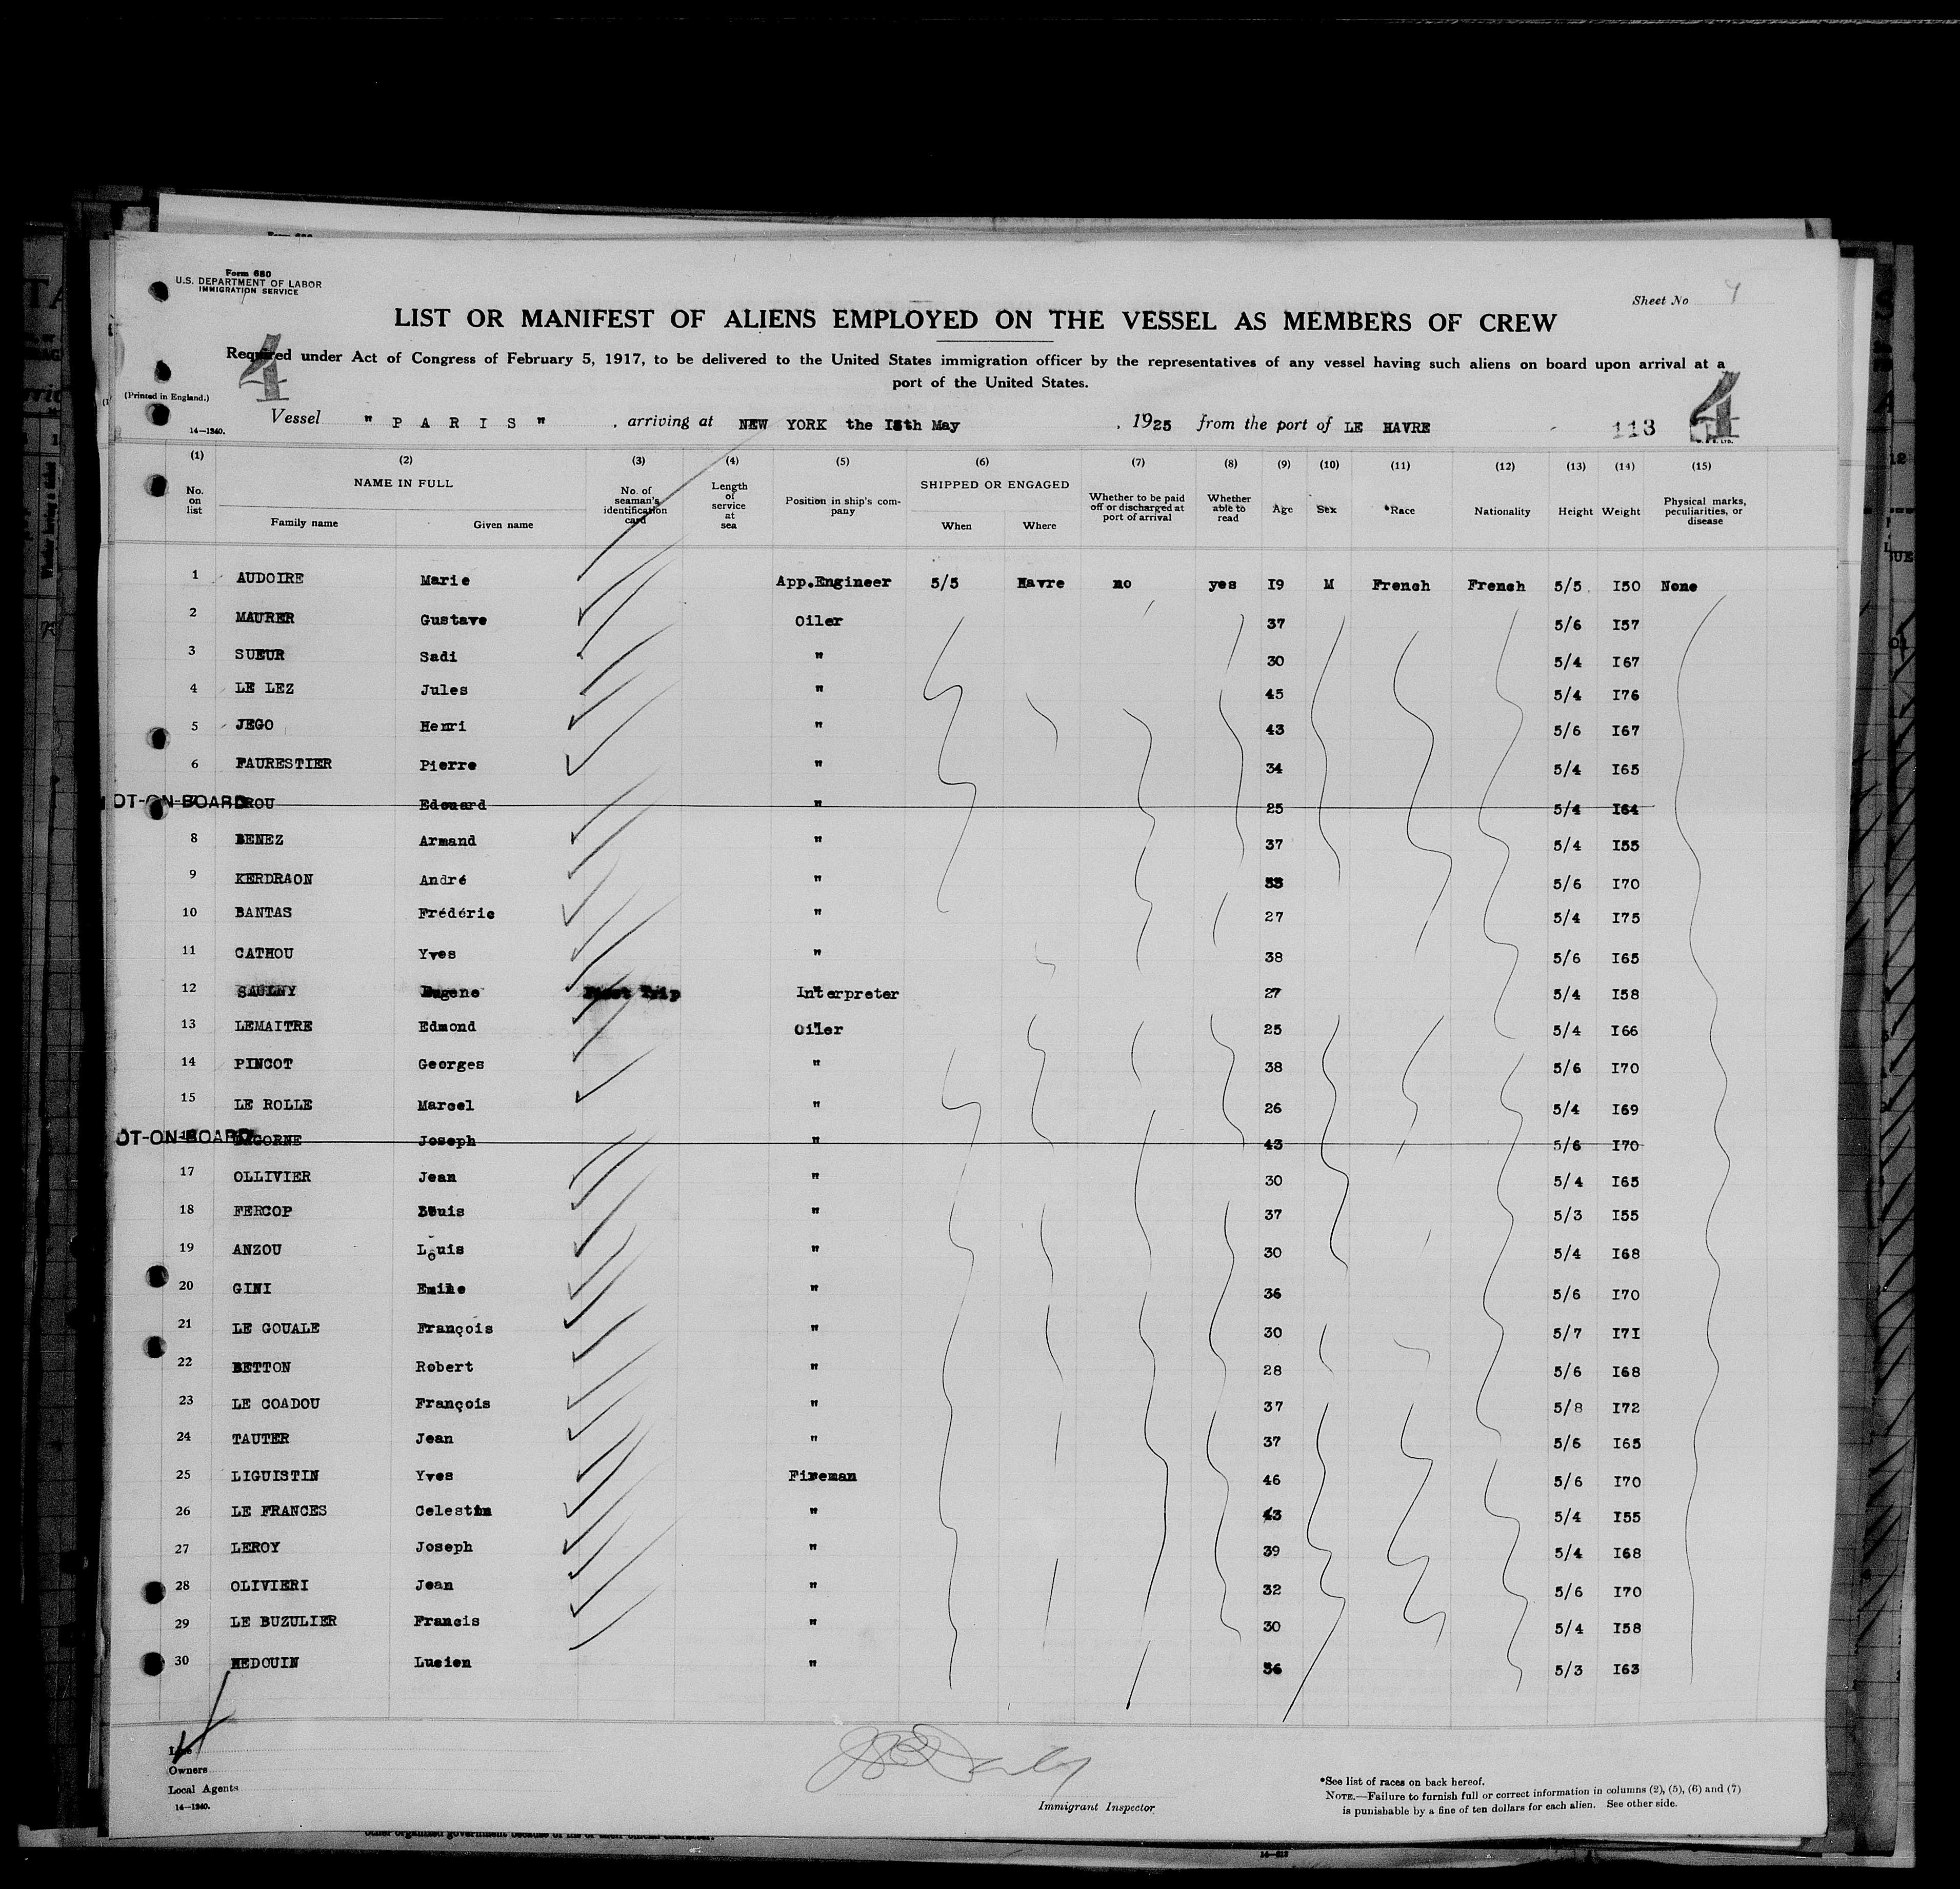 Form 680
U.S. DEPARTMENT OF LABOR
IMMIGRATION SERVICE
Sheet No 4
LIST OR MANIFEST OF ALIENS EMPLOYED ON THE VESSEL AS MEMBERS OF CREW
4
Required under Act of Congress of February 5, 1917, to be delivered to the United States immigration officer by the representatives of any vessel having such aliens on board upon arrival at a
port of the United States.
(Printed in England.)
14—1240.
Vessel " P A R I S " , arriving at NEW YORK the May , 1925 from the port of LE HAVRE 113 4
(1) (2) (3) (4) (5) (6) (7) (8) (9) (10) (11) (12) (13) (14) (15)
No. on list NAME IN FULL Family name Given name No. of seaman's identification card Length of service at sea Position in ship's company SHIPPED OR ENGAGED When Where Whether to be paid off or discharged at port of arrival Whether able to read Age Sex *Race Nationality Height Weight Physical marks, peculiarities, or disease
1 AUDOIRE Marie App.Engineer 5/5 Havre no yes I9 M French French 5/5 I50 None
2 MAURER Gustave Oiler 37 5/6 I57
3 SUEUR Sadi " 30 5/4 I67
4 LE LEZ Jules " 45 5/4 I76
5 JEGO Henri " 43 5/6 I67
6 FAURESTIER Pierre " 34 5/4 I65
OT-ON-BOARD Edouard " 25 5/4 I64
8 BENEZ Armand " 37 5/4 I55
9 KERDRAON André " 5/6 I70
10 BANTAS Frédéric " 27 5/4 I75
11 CATHOU Yves " 38 5/6 I65
12 SAULNY Eugene First Trip Interpreter 27 5/4 I58
13 LEMAITRE Edmond Oiler 25 5/4 I66
14 PINCOT Georges " 38 5/6 I70
15 LE ROLLE Marcel " 26 5/4 I69
OT-ON-BOARD Joseph " 43 5/6 I70
17 OLLIVIER Jean " 30 5/4 I65
18 FERCOP Louis " 37 5/3 I55
19 ANZOU Louis " 30 5/4 I68
20 GINI Emile " 36 5/6 I70
21 LE GOUALE François " 30 5/7 I7I
22 BETTON Robert " 28 5/6 I68
23 LE COADOU François " 37 5/8 I72
24 TAUTER Jean " 37 5/6 I65
25 LIGUISTIN Yves Fireman 46 5/6 I70
26 LE FRANCES Celestin " 43 5/4 I55
27 LEROY Joseph " 39 5/4 I68
28 OLIVIERI Jean " 32 5/6 I70
29 LE BUZULIER Francis " 30 5/4 I58
30 HEDOUIN Lucien " 36 5/3 I63
Line
Owners
Local Agents
14—1240.
Immigrant Inspector
*See list of races on back hereof.
NOTE.—Failure to furnish full or correct information in columns (2), (5), (6) and (7)
is punishable by a fine of ten dollars for each alien. See other side.